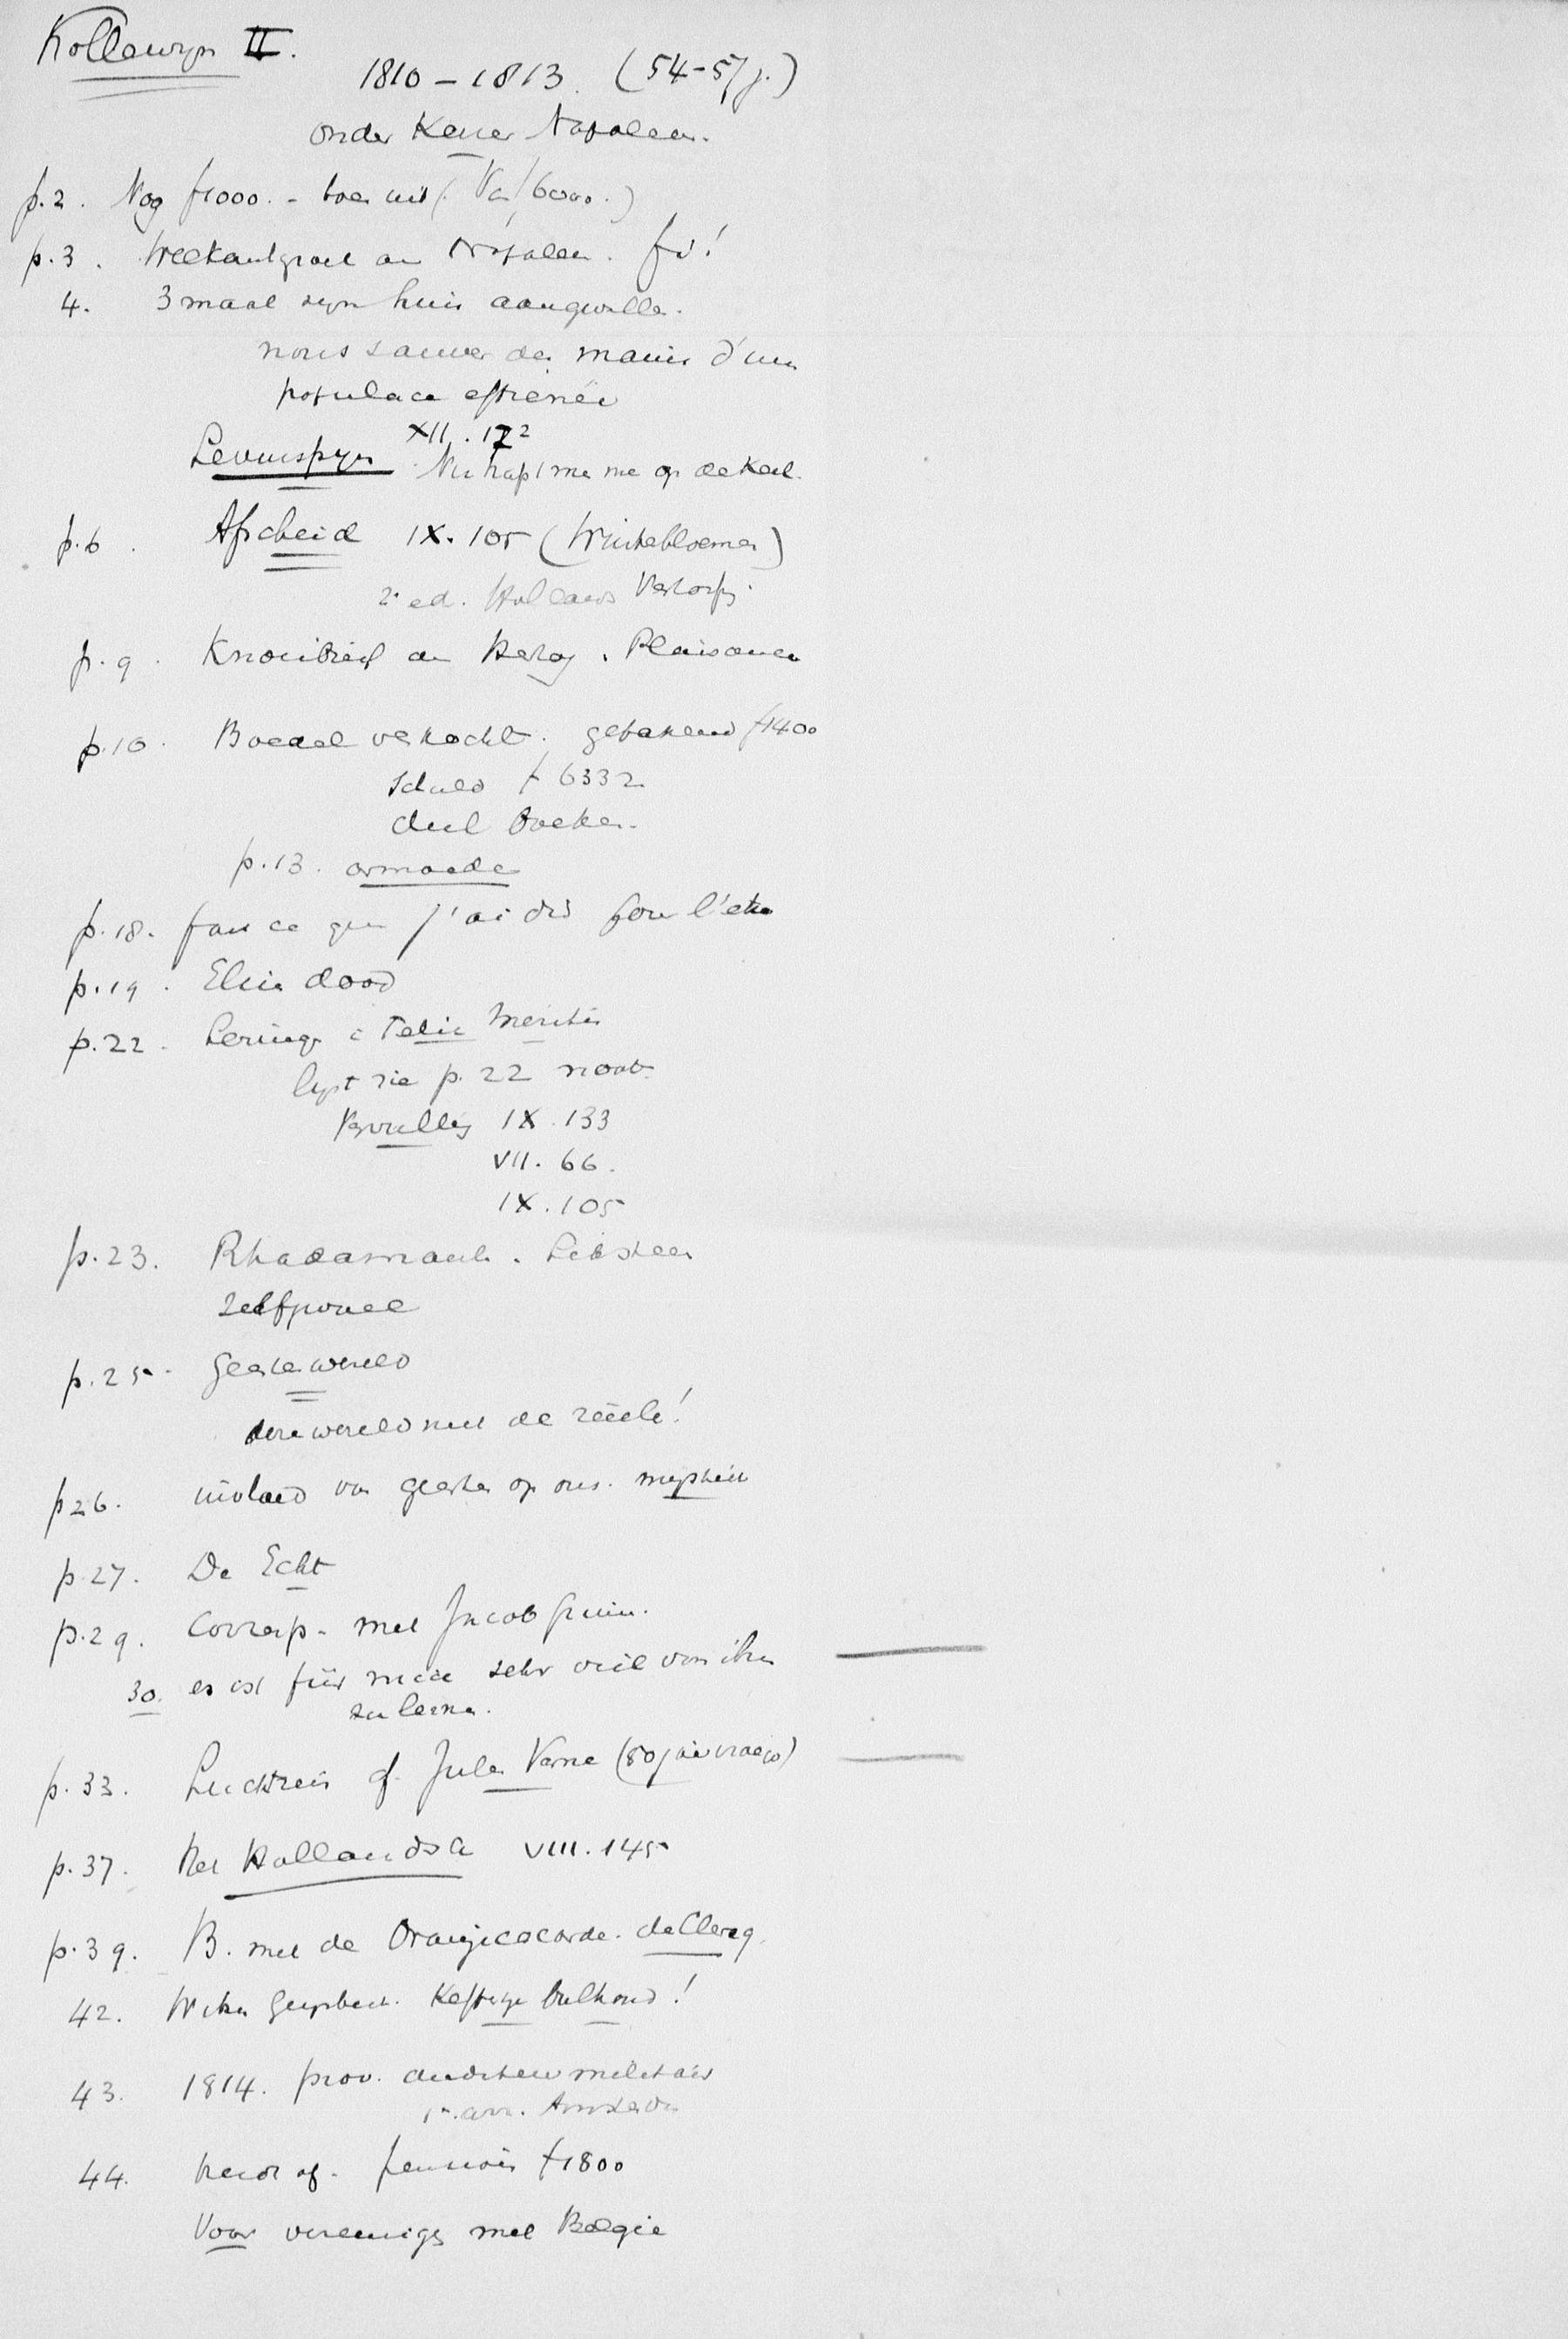 Kollewyn II.
1810 – 1813. (54-57 j.)
onder Keizer Napoleon.
p.2. Nog f 1000.- toen uit (Van f 6000.)
p.3. Welkomstgroet aan Napoleon. fi!
4. 3 maal zijn huis aangevallen.
nous sauver des mains d'une
populace effrenée
XII. 172
Levenspijn
op de keel.
p.6. Afscheid IX. 105 (Winterbloemen)
2e ed. Hollands Verlossing
p.9. Kruibrief aan Hertog v. Plaisance
p.10. Boedel verkocht. getaxeerd f 1400
Schuld f 6332
deel boeken.
p.13. armoede
p.18. fais ce que j'ai dis pour l'etre
p.19. Elius dood
p.22. Lezingen in Felix Meritis
lijst zie p. 22 noot.
IX. 133
VII. 66.
IX. 105
p.23. Rhadamanth.
zelfgevoel
p.25. Geestenwereld
deze wereld niet de reëele!
p26. invloed van geesten op ons. mystiek
p.27. De Echt
p.29. Corresp. met Jacob Grimm.
30. es ist für mich sehr viel von ihm
zu lernen.
p.33. Luchtreis cf. Jules Verne (80 jaar vroeger)
p.37. Het Hollandsch VIII. 145
p.39. B. met de Oranjecocarde. de Clercq.
42. Witsen Geysbeek. Keffertje bulhond!
43. 1814. prov. auditeur militair
1e arr. Amsterdam
44. pensioen f 1800
Voor vereeniging met België